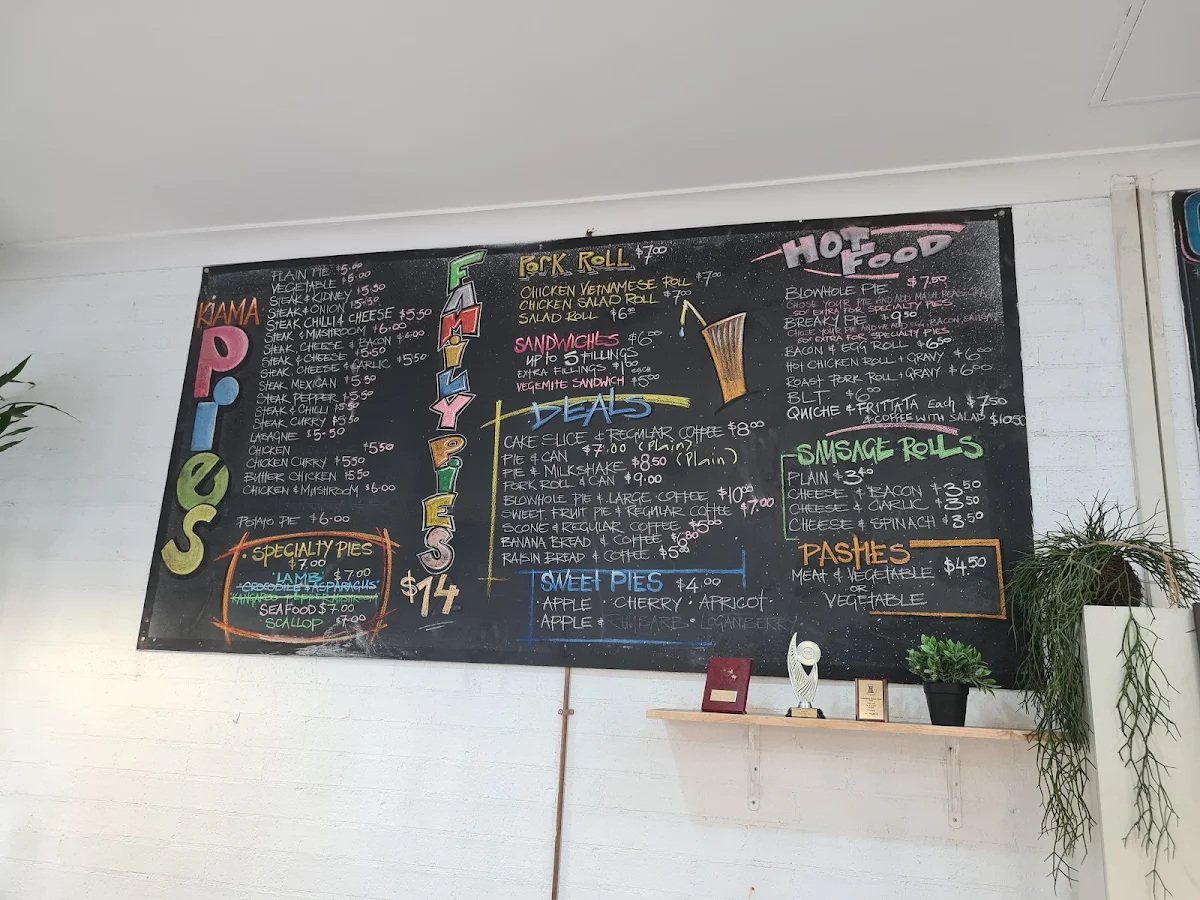 KIAMA
Pies
PLAIN PIE $5.00
VEGETABLE $5.00
STEAK & KIDNEY $5.50
STEAK & ONION $5.50
STEAK CHILLI & CHEESE $5.50
STEAK & MUSHROOM $6.00
STEAK, CHEESE & BACON $6.00
STEAK & CHEESE $5.50
STEAK, CHEESE & GARLIC $5.50
STEAK MEXICAN $5.50
STEAK PEPPER $5.50
STEAK & CHILLI $5.50
STEAK CURRY $5.50
LASAGNE $5.50
CHICKEN $5.50
CHICKEN CURRY $5.50
BUTTER CHICKEN $5.50
CHICKEN & MUSHROOM $6.00
POTATO PIE $6.00
SPECIALTY PIES
$7.00
'LAMB' $7.00
CROCODILE & ASPARAGUS
KANGAROO PEPPER MUSHROOM
SEAFOOD $7.00
SCALLOP $7.00
FAMILY PIES
$14
PORK ROLL $7.00
CHICKEN VIETNAMESE ROLL $7.00
CHICKEN SALAD ROLL $7.00
SALAD ROLL $6.00
SANDWICHES $6.00
UP TO 5 FILLINGS
EXTRA FILLINGS $1.00 EACH
VEGEMITE SANDWICH $5.00
DEALS
CAKE SLICE & REGULAR COFFEE $8.00
PIE & CAN $7.00 (Plain)
PIE & MILKSHAKE $8.50 (Plain)
PORK ROLL & CAN $9.00
BLOWHOLE PIE & LARGE COFFEE $10.00
SWEET FRUIT PIE & REGULAR COFFEE $7.00
SCONE & REGULAR COFFEE $5.00
BANANA BREAD & COFFEE
RAISIN BREAD & COFFEE
SWEET PIES $4.00
· APPLE · CHERRY · APRICOT
· APPLE & RHUBARB · LOGANBERRY
HOT FOOD
BLOWHOLE PIE $7.50
CHOSE YOUR PIE AND ADD MASH PEAS
50¢ EXTRA FOR SPECIALTY PIES
BREAKY PIE $9.50
CHOSE YOUR PIE AND WE ADD EGG, BACON, SAUSAGE
50¢ EXTRA FOR SPECIALTY PIES
BACON & EGG ROLL $6.50
HOT CHICKEN ROLL + GRAVY $6.00
ROAST PORK ROLL + GRAVY $6.00
B.L.T. $6.00
QUICHE & FRITTATA Each $7.50
& COFFEE WITH SALAD $10.50
SAUSAGE ROLLS
PLAIN $3.40
CHEESE & BACON $3.50
CHEESE & GARLIC $3.50
CHEESE & SPINACH $3.50
PASTIES
MEAT & VEGETABLE $4.50
OR
VEGETABLE